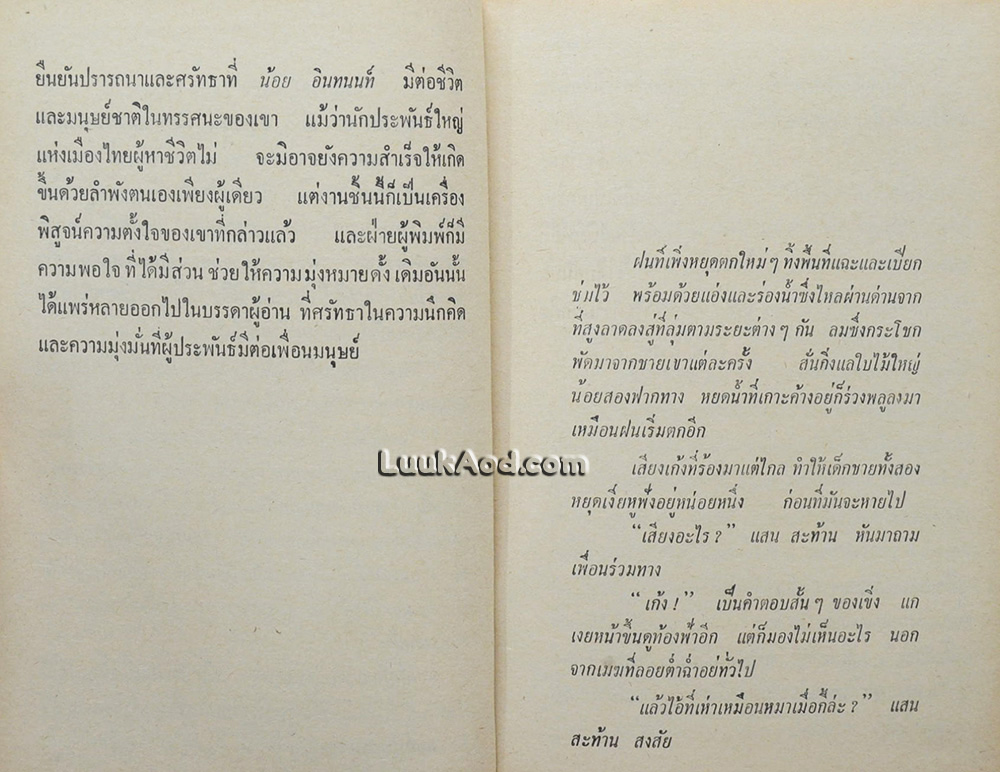 ยืนยันปรารถนาและศรัทธาที่ น้อย อินทนนท์ มีต่อชีวิต
และมนุษย์ชาติในทรรศนะของเขา แม้ว่านักประพันธ์ใหญ่
แห่งเมืองไทยผู้หาชีวิตไม่ จะมิอาจยังความสำเร็จให้เกิด
ขึ้นด้วยลำพังตนเองเพียงผู้เดียว แต่งานชิ้นนี้ก็เป็นเครื่อง
พิสูจน์ความตั้งใจของเขาที่กล่าวแล้ว และฝ่ายผู้พิมพ์ก็มี
ความพอใจ ที่ได้มีส่วน ช่วยให้ความมุ่งหมายดั้งเดิมอันนั้น
ได้แพร่หลายออกไปในบรรดาผู้อ่าน ที่ศรัทธาในความนึกคิด
และความมุ่งมั่นที่ผู้ประพันธ์มีต่อเพื่อนมนุษย์
ฝนที่เพิ่งหยุดตกใหม่ๆ ทิ้งพื้นที่แฉะและเปียก
ชุ่มไว้ พร้อมด้วยแอ่งและร่องน้ำซึ่งไหลผ่านด่านจาก
ที่สูงลาดลงสู่ที่ลุ่มตามระยะต่างๆ กัน ลมซึ่งกระโชก
พัดมาจากชายเขาแต่ละครั้ง สั่นกิ่งแลใบไม้ใหญ่
น้อยสองฟากทาง หยดน้ำที่เกาะค้างอยู่ก็ร่วงพลูลงมา
เหมือนฝนเริ่มตกอีก
เสียงเก้งที่ร้องมาแต่ไกล ทำให้เด็กชายทั้งสอง
หยุดเงี่ยหูฟังอยู่หน่อยหนึ่ง ก่อนที่มันจะหายไป
“เสียงอะไร ?” แสน สะท้าน หันมาถาม
เพื่อนร่วมทาง
“เก้ง !” เป็นคำตอบสั้นๆ ของเขิ่ง แก
เงยหน้าขึ้นดูท้องฟ้าอีก แต่ก็มองไม่เห็นอะไร นอก
จากเมฆที่ลอยต่ำฉ่ำอยู่ทั่วไป
“แล้วไอ้ที่เห่าเหมือนหมาเมื่อกี้ล่ะ ?” แสน
สะท้าน สงสัย
LuukAod.com